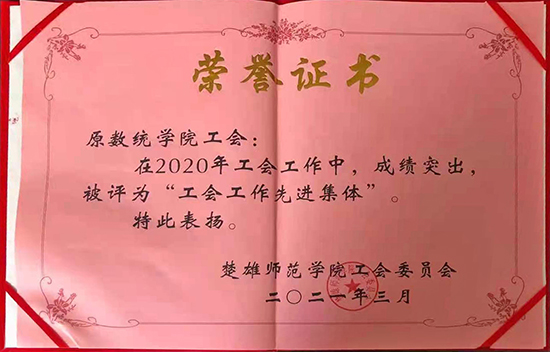 荣誉证书
原数统学院工会：
在2020年工会工作中，成绩突出，
被评为“工会工作先进集体”。
特此表扬。
楚雄师范学院工会委员会
二〇二一年三月